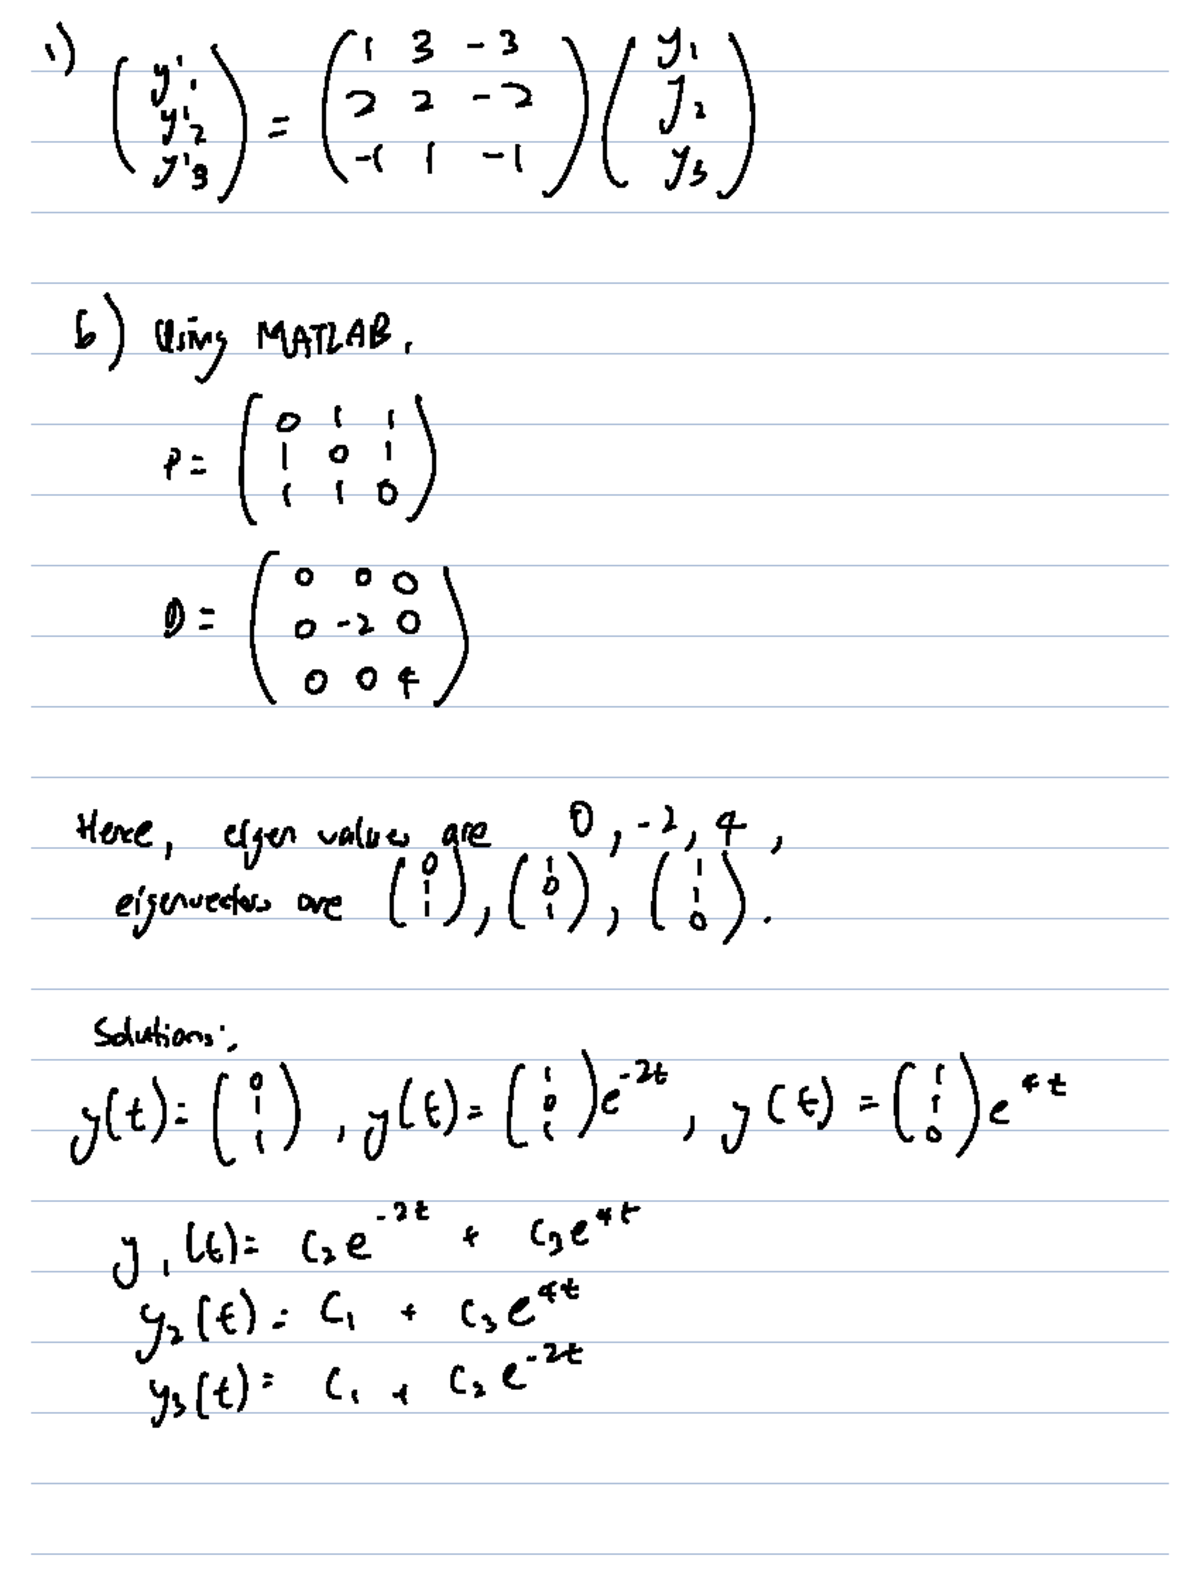 1) (y'1 y'2 y'3) = (1 3 -3
2 2 -2
-1 1 -1) (y1 y2 y3)
b) Using MATLAB,
P = (0 1 1
1 0 1
1 1 0)
D = (0 0 0
0 -2 0
0 0 4)
Hence, eigen values are 0, -2, 4,
eigenvectors are (0 1 1), (1 0 1), (1 1 0).
Solutions:
y(t) = (0 1 1), y(t) = (1 0 1)e^-2t, y(t) = (1 1 0)e^4t
y1(t) = C2e^-2t + C3e^4t
y2(t) = C1 + C3e^4t
y3(t) = C1 + C2e^-2t